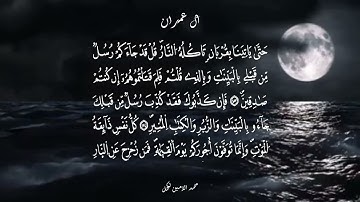 آل عمران
حَتَّىٰ يَأْتِيَنَا بِقُرْبَانٍ تَأْكُلُهُ النَّارُ قُلْ قَدْ جَاءَكُمْ رُسُلٌ
مِّن قَبْلِي بِالْبَيِّنَاتِ وَبِالَّذِي قُلْتُمْ فَلِمَ قَتَلْتُمُوهُمْ إِن كُنتُمْ
صَادِقِينَ ۝ فَإِن كَذَّبُوكَ فَقَدْ كُذِّبَ رُسُلٌ مِّن قَبْلِكَ
جَاءُو بِالْبَيِّنَاتِ وَالزُّبُرِ وَالْكِتَابِ الْمُنِيرِ ۝ كُلُّ نَفْسٍ ذَائِقَةُ
الْمَوْتِ وَإِنَّمَا تُوَفَّوْنَ أُجُورَكُمْ يَوْمَ الْقِيَامَةِ فَمَن زُحْزِحَ عَنِ النَّارِ
محمد الامين